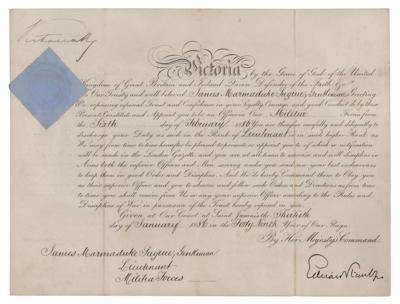 Victoria
Victoria by the Grace of God of the United
Kingdom of Great Britain and Ireland Queen Defender of the Faith &c.
To Our Trusty and well beloved James Marmaduke Gentleman Greeting
We reposing especial Trust and Confidence in your Loyalty Courage, and good Conduct do by these
Presents Constitute and Appoint you to be an Officer in Our Militia Forces from
the Sixth day of February 1886 You are therefore carefully and diligently to
discharge your Duty as such in the Rank of Lieutenant or in such higher Rank as
We may from time to time hereafter be pleased to promote or appoint you to of which a notification
will be made in the London Gazette, and you are at all times to exercise and well discipline in
Arms both the inferior Officers and Men serving under you and use your best endeavours
to keep them in good Order and Discipline. And We do hereby Command them to Obey you
as their superior Officer and you to observe and follow such Orders and Directions as from time
to time you shall receive from Us or any your superior Officer according to the Rules and
Discipline of War in pursuance of the Trust hereby reposed in you.
Given at Our Court, at Saint James's the Thirtieth
day of January 1886 in the Forty Ninth Year of Our Reign
By Her Majesty's Command
James Marmaduke Gentleman
Lieutenant
Militia Forces